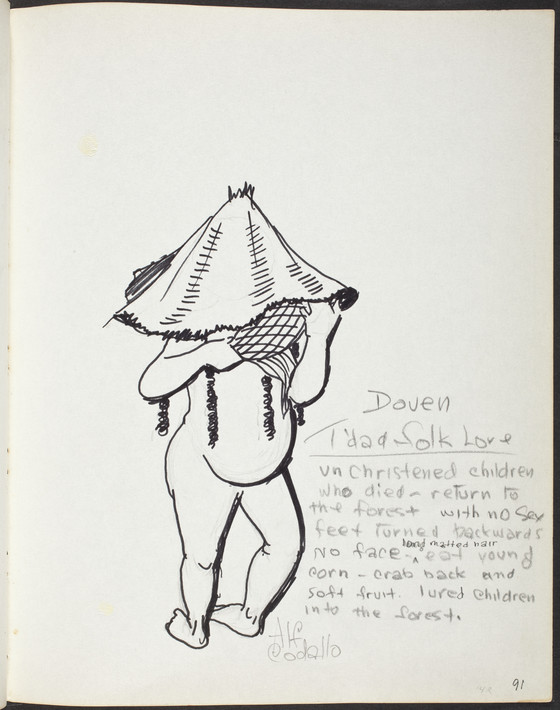 Douen
T'dad folk Lore
un christened children
who died - return to
the forest with no sex
feet turned backwards
long matted hair
No face - ^ eat young
corn - crab back and
soft fruit. lured children
into the forest.
Alf
Codallo
91